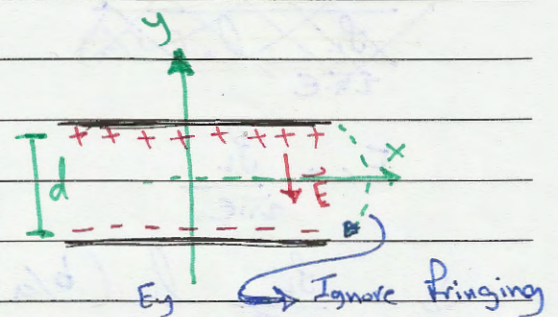 y
+ + + + + + + +
x
d
E
- - - - - - -
Ey
Ignore fringing